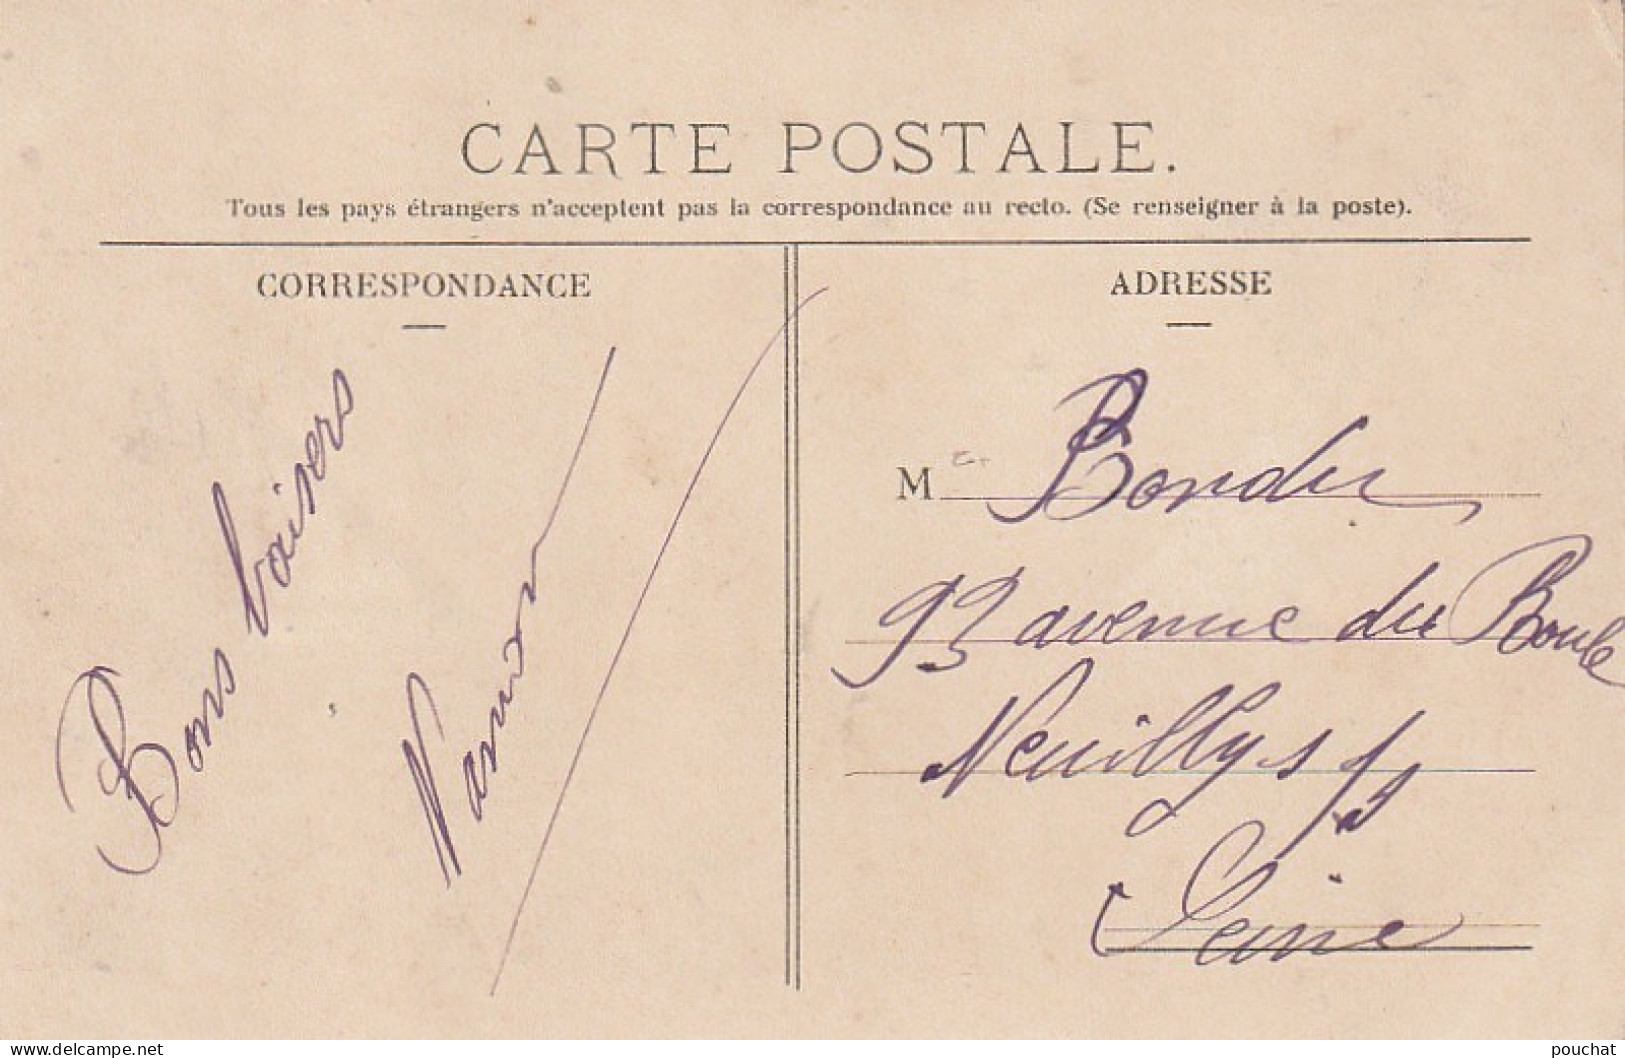 CARTE POSTALE.
Tous les pays étrangers n'acceptent pas la correspondance au recto. (Se renseigner à la poste).
CORRESPONDANCE
Bons baisers
Nanon
ADRESSE
M Bondu
93 avenue du Roule
Neuilly s/s
Seine
www.delcampe.net
pouchat